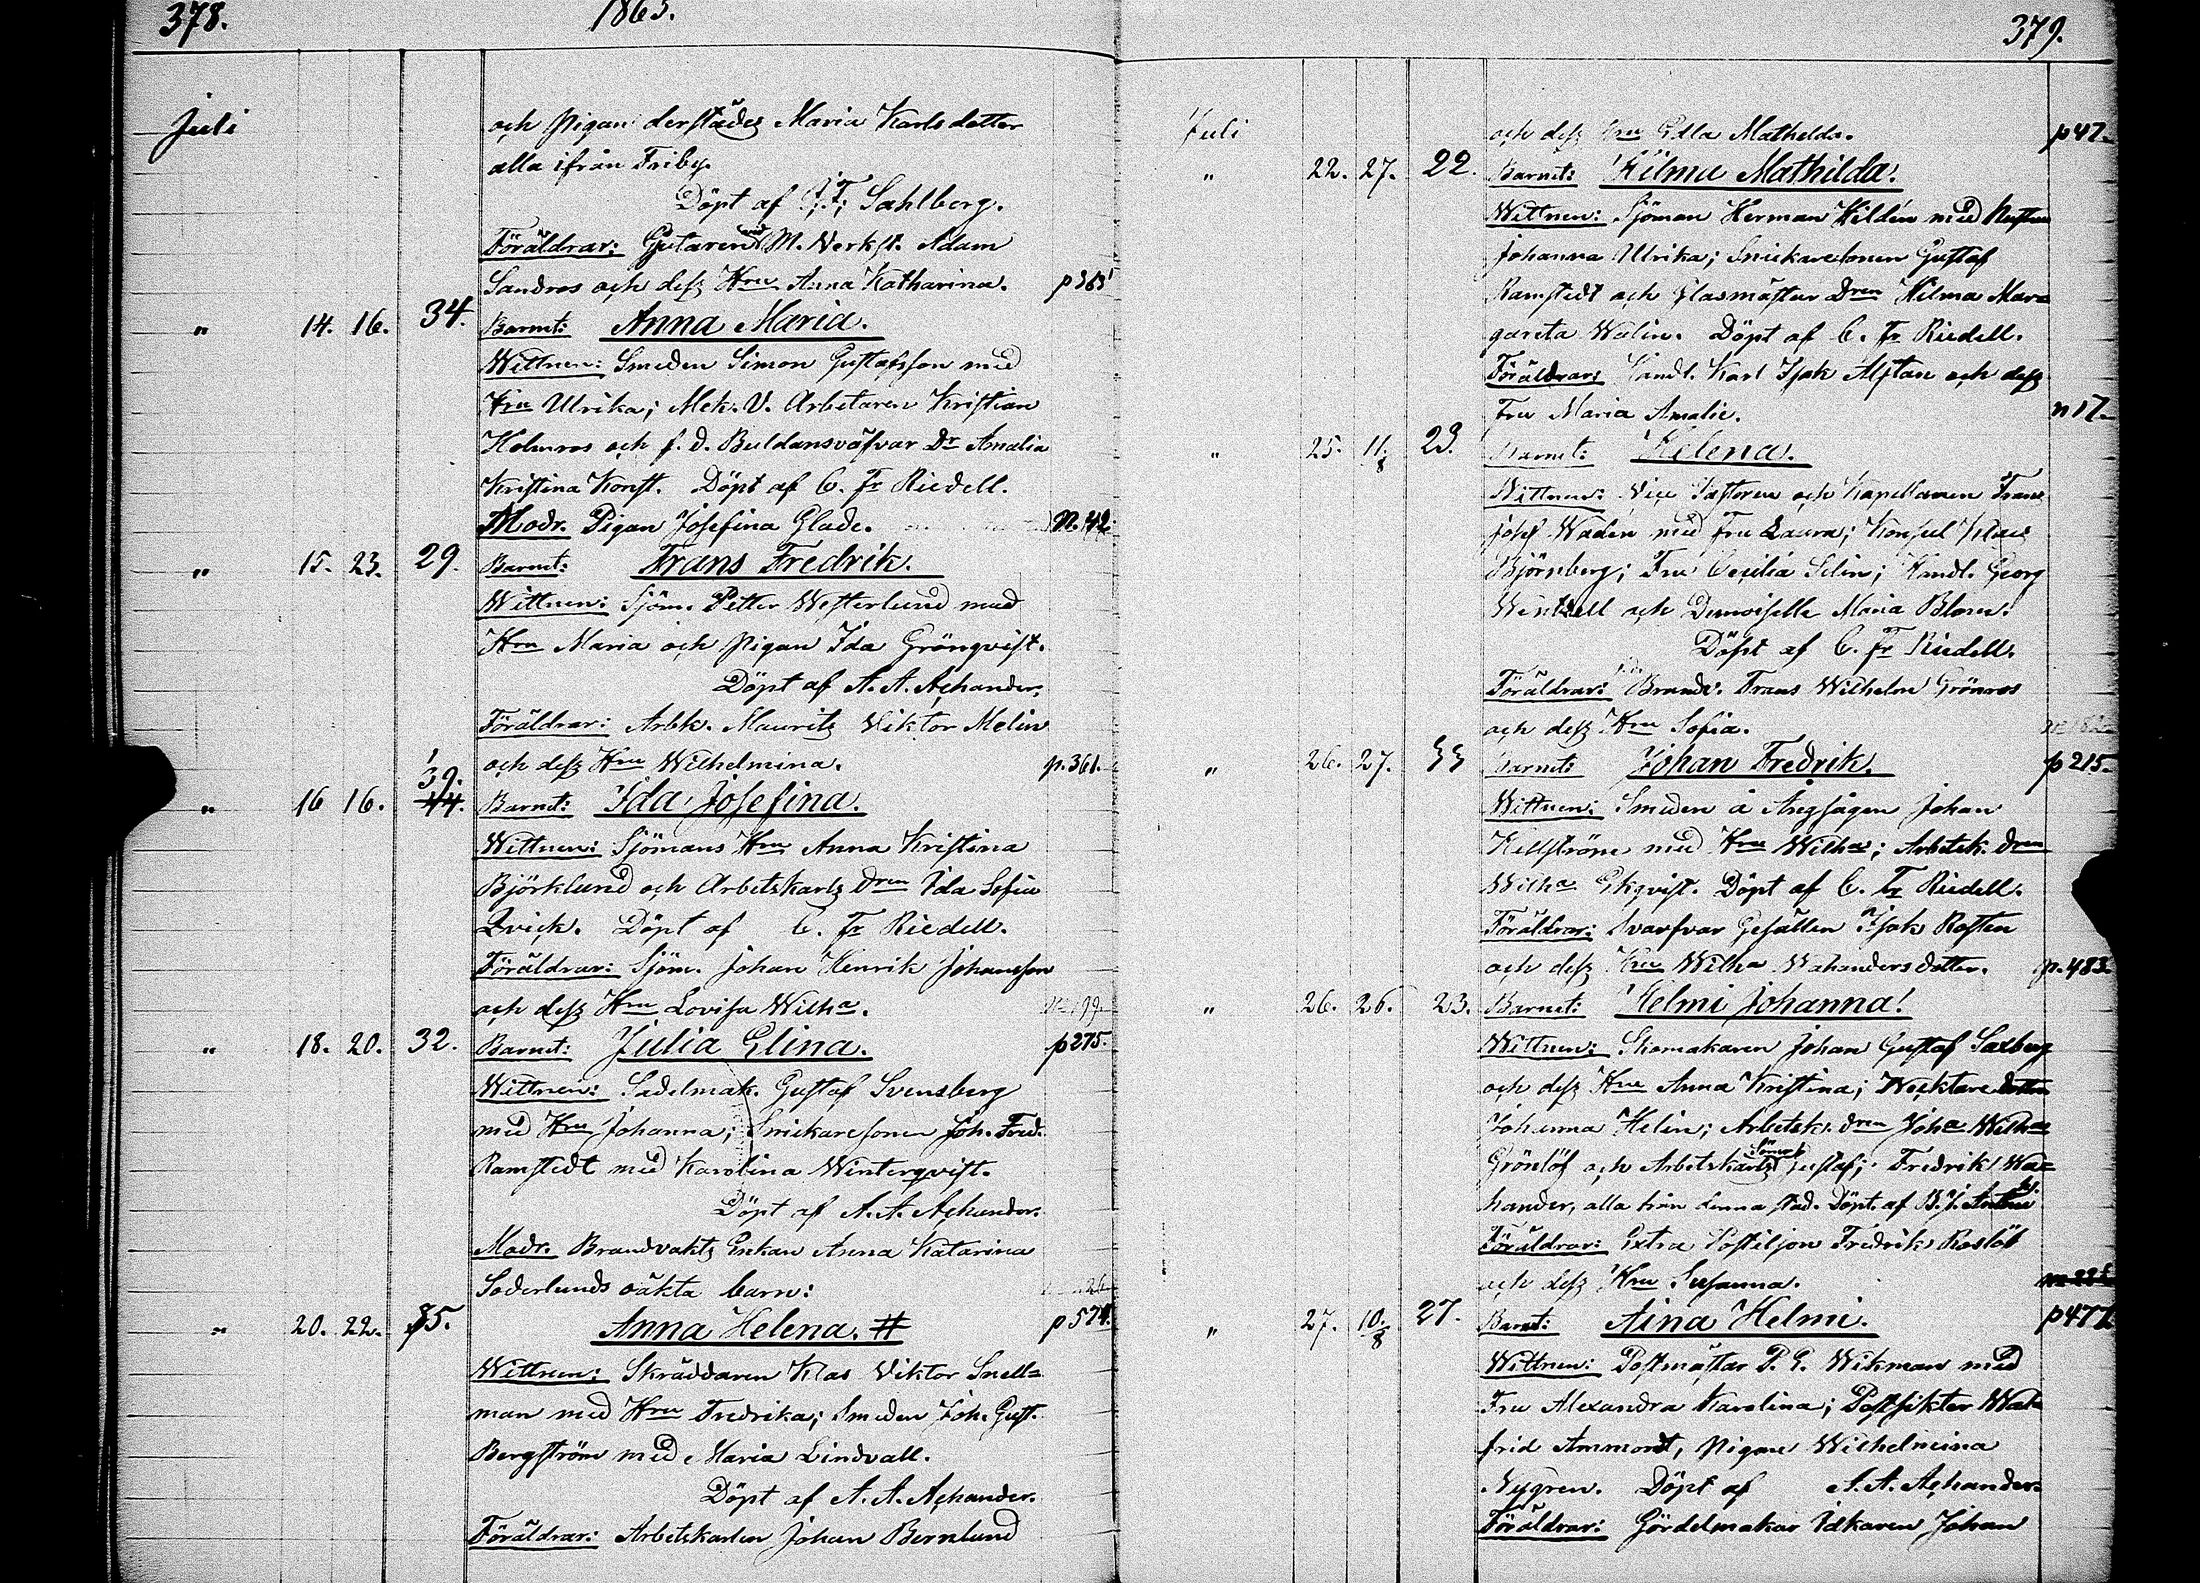 378.
1865.
Juli
och Pigan derstädes Maria Karlsdotter
alla ifrån Friby.
Döpt af Sahlberg.
Föräldrar: Gjutaren vid M. Verkst. Adam
Sandros och dess Hru Anna Katharina. p 363
" 14. 16. 34. Barnet: Anna Maria.
Wittnen: Smeden Simon Gustafsson med
Hru Ulrika; Mek. V. Arbetaren Kristian
Holmros och f. d. Buldansväfvar Dr Amalia
Kristina Konst. Döpt af C. Fr Riedell.
Modr. Pigan Josefina Glade. N. 42.
" 15. 23. 29. Barnet: Frans Fredrik.
Wittnen: Sjöm. Petter Westerlund med
Hru Maria och pigan Ida Grönqvist.
Döpt af A. A. Achander.
Föräldrar: Arbk. Mauritz Viktor Melin
och dess Hru Wilhelmina. p. 361.
" 16 16. 39. 44. Barnet: Ida Josefina.
Wittnen: Sjömans Hru Anna Kristina
Björklund och Arbetskarls Dren Ida Sofia
Qvick. Döpt af C. Fr Riedell.
Föräldrar: Sjöm. Johan Henrik Johansson
och dess Hru Lovisa Wilha. 199.
" 18. 20. 32. Barnet: Julia Elina. p 275.
Wittnen: Sadelmak. Gustaf Svensberg
med Hru Johanna; Snickaresonen Joh. Fred.
Ramstedt med Karolina Winterqvist.
Döpt af A. A. Achander.
Modr. Brandvakts Enkan Anna Katarina
Soderlunds oäkta barn:
" 20. 22. 35. Anna Helena. # p 574.
Wittnen: Skräddaren Klas Viktor Snell=
man med Hru Fredrika; Smeden Joh. Gust.
Bergström med Maria Lindvall.
Döpt af A. A. Achander.
Föräldrar: Arbetskarlen Johan Bernlund
379.
Juli
och dess Hru Edla Mathilda. p 47.
" 22. 27. 22. Barnet: Hilma Mathilda.
Wittnen: Sjöman Herman Hildén med Hustru
Johanna Ulrika; Snickaresonen Gustaf
Ramstedt och Glasmästar Dren Hilma Mar=
gareta Walin. Döpt af C. Fr Riedell.
Föräldrar: Handl. Karl Isak Alftan och dess
Fru Maria Amalie. n 17.
" 25. 11/8 23. Barnet: Helena.
Wittnen: Vice Pastoren och Kapellanen Frans
Josef Wadén med Fru Laura; Konsul Klas
Björnberg; Fru Cecilia Selin; Handl. Georg
Wentzell och Demoiselle Maria Blom.
Döpt af C. Fr Riedell.
Föräldrar: Brandv. Frans Wilhelm Grönros
och dess Hru Sofia.
" 26. 27. 33 Barnet: Johan Fredrik. p 215.
Wittnen: Smeden å Ångsågen Johan
Kellström med Hru Wilha; Arbetsk. dren
Wilha Ekqvist. Döpt af C. Fr Riedell.
Föräldrar: Svarfvar Gesällen Isak Rosten
och dess Hru Wilha Wahandersdotter. p. 483.
" 26. 26. 23. Barnet: Helmi Johanna!
Wittnen: Skomakaren Johan Gustaf Saxberg
och dess Hru Anna Kristina; Wäcktare dotter
Johanna Helin; Arbetsk. dren Joha Wilha
Grönlöf och Arbetskarls Sönerne Gustaf; Fredrik Wa=
hander, alla från denna stad. Döpt af B. J.
Föräldrar: Extra Postiljon Fredrik Roslöf
och dess Hru Susanna.
" 27. 10/8 27. Barnet: Aina Helmi. p 477
Wittnen: Postmästar P. G. Wikman med
Fru Alexandra Karolina; Wal=
frid Ammondt, pigan Wilhelmina
Nygren. Döpt af A. A. Achander.
Föräldrar: Gördelmakar Idkaren Johan